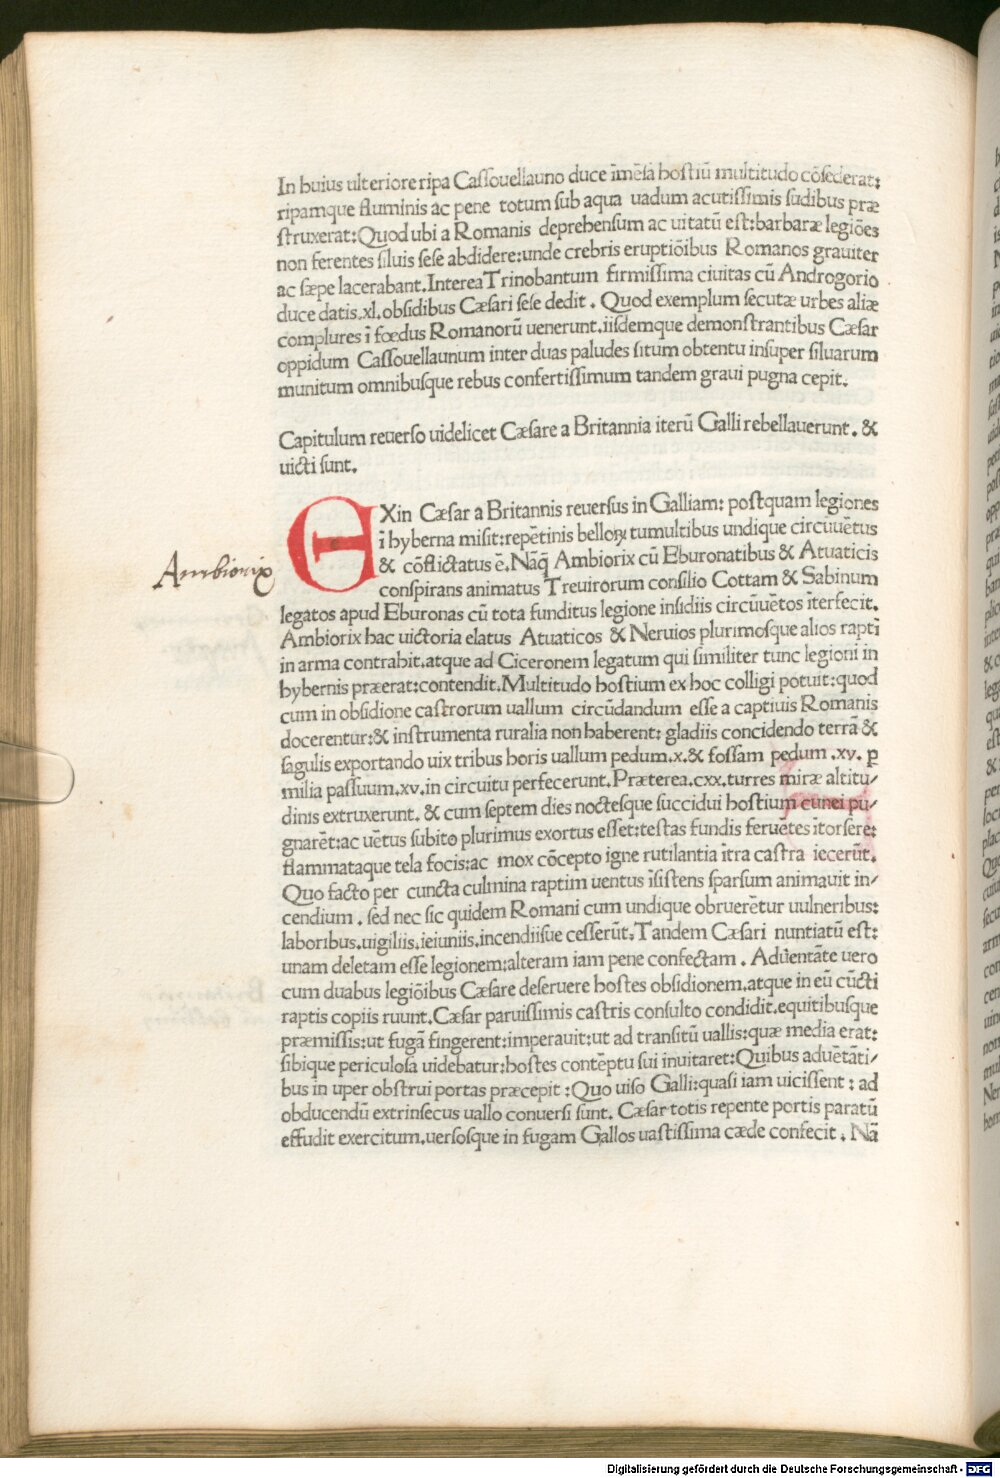 In huius ulteriore ripa Cassouellauno duce īmēsa hostiū multitudo cōsederat:
ripamque fluminis ac pene totum sub aqua uadum acutissimis sudibus præ
struxerat: Quod ubi a Romanis deprehensum ac uitatū est: barbaræ legiōes
non ferentes siluis sese abdidere: unde crebris eruptiōibus Romanos grauiter
ac sæpe lacerabant. Interea Trinobantum firmissima ciuitas cū Androgorio
duce datis .xl. obsidibus Cæsari sese dedit. Quod exemplum secutæ urbes aliæ
complures ī fœdus Romanorū uenerunt. iisdemque demonstrantibus Cæsar
oppidum Cassouellaunum inter duas paludes situm obtentu insuper siluarum
munitum omnibusque rebus confertissimum tandem graui pugna cepit.
Capitulum reuerso uidelicet Cæsare a Britannia iterū Galli rebellauerunt. &
uicti sunt.
EXin Cæsar a Britannis reuersus in Galliam: postquam legiones
ī hyberna misit: repētinis belloꝝ tumultibus undique circuuētus
& cōflictatus ē. Nāq̄ Ambiorix cū Eburonatibus & Atuaticis
Ambiorix
conspirans animatus Treuirorum consilio Cottam & Sabinum
legatos apud Eburonas cū tota funditus legione insidiis circūuētos īterfecit.
Ambiorix hac uictoria elatus Atuaticos & Neruios plurimosque alios raptī
in arma contrahit. atque ad Ciceronem legatum qui similiter tunc legioni in
hybernis præerat: contendit. Multitudo hostium ex hoc colligi potuit: quod
cum in obsidione castrorum uallum circūdandum esse a captiuis Romanis
docerentur: & instrumenta ruralia non haberent: gladiis concidendo terrā &
sagulis exportando uix tribus horis uallum pedum .x. & fossam pedum .xv. ꝑ
milia passuum .xv. in circuitu perfecerunt. Præterea .cxx. turres miræ altitu/
dinis extruxerunt. & cum septem dies noctesque succidui hostium cunei pu/
gnarēt: ac uētus subito plurimus exortus esset: testas fundis feruētes ītorsere:
flammataque tela focis: ac mox cōcepto igne rutilantia ītra castra iecerūt.
Quo facto per cuncta culmina raptim uentus īsistens sparsum animauit in/
cendium. sed nec sic quidem Romani cum undique obruerētur uulneribus:
laboribus. uigiliis. ieiuniis. incendiisue cesserūt. Tandem Cæsari nuntiatū est:
unam deletam esse legionem: alteram iam pene confectam. Aduentāte uero
cum duabus legiōibus Cæsare deseruere hostes obsidionem. atque in eū cūcti
raptis copiis ruunt. Cæsar paruissimis castris consulto condidit. equitibusque
præmissis: ut fugā fingerent: imperauit: ut ad transitū uallis: quæ media erat:
sibique periculosa uidebatur: hostes contēptu sui inuitaret: Quibus aduētāti/
bus in uper obstrui portas præcepit: Quo uiso Galli: quasi iam uicissent: ad
obducendū extrinsecus uallo conuersi sunt. Cæsar totis repente portis paratū
effudit exercitum. uersosque in fugam Gallos uastissima cæde confecit. Nā
Digitalisierung gefördert durch die Deutsche Forschungsgemeinschaft - DFG